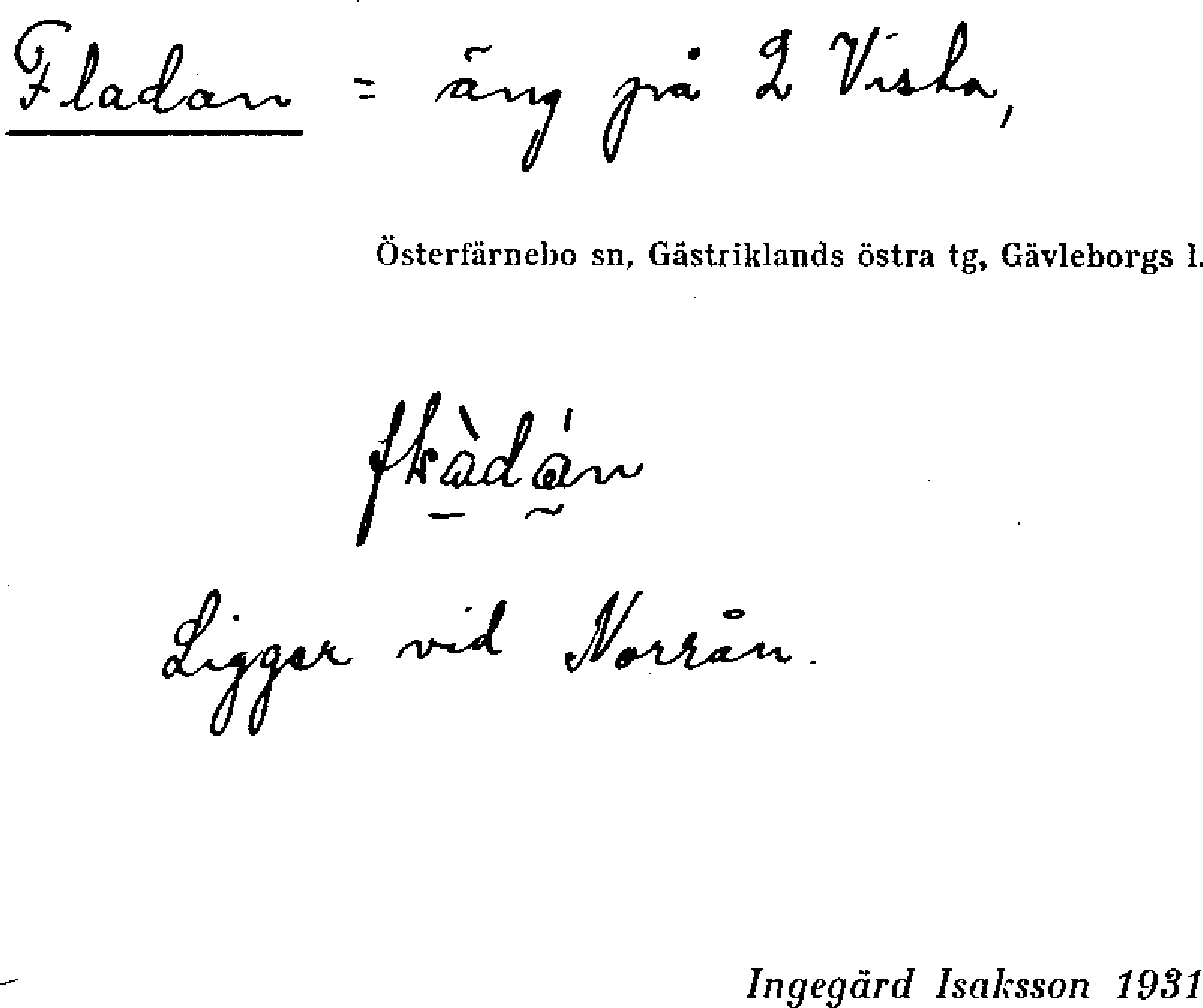 Fladan = äng på 2 Viska,
Österfärnebo sn, Gästriklands östra tg, Gävleborgs l.
Ligger vid Norrån.
Ingegärd Isaksson 1931